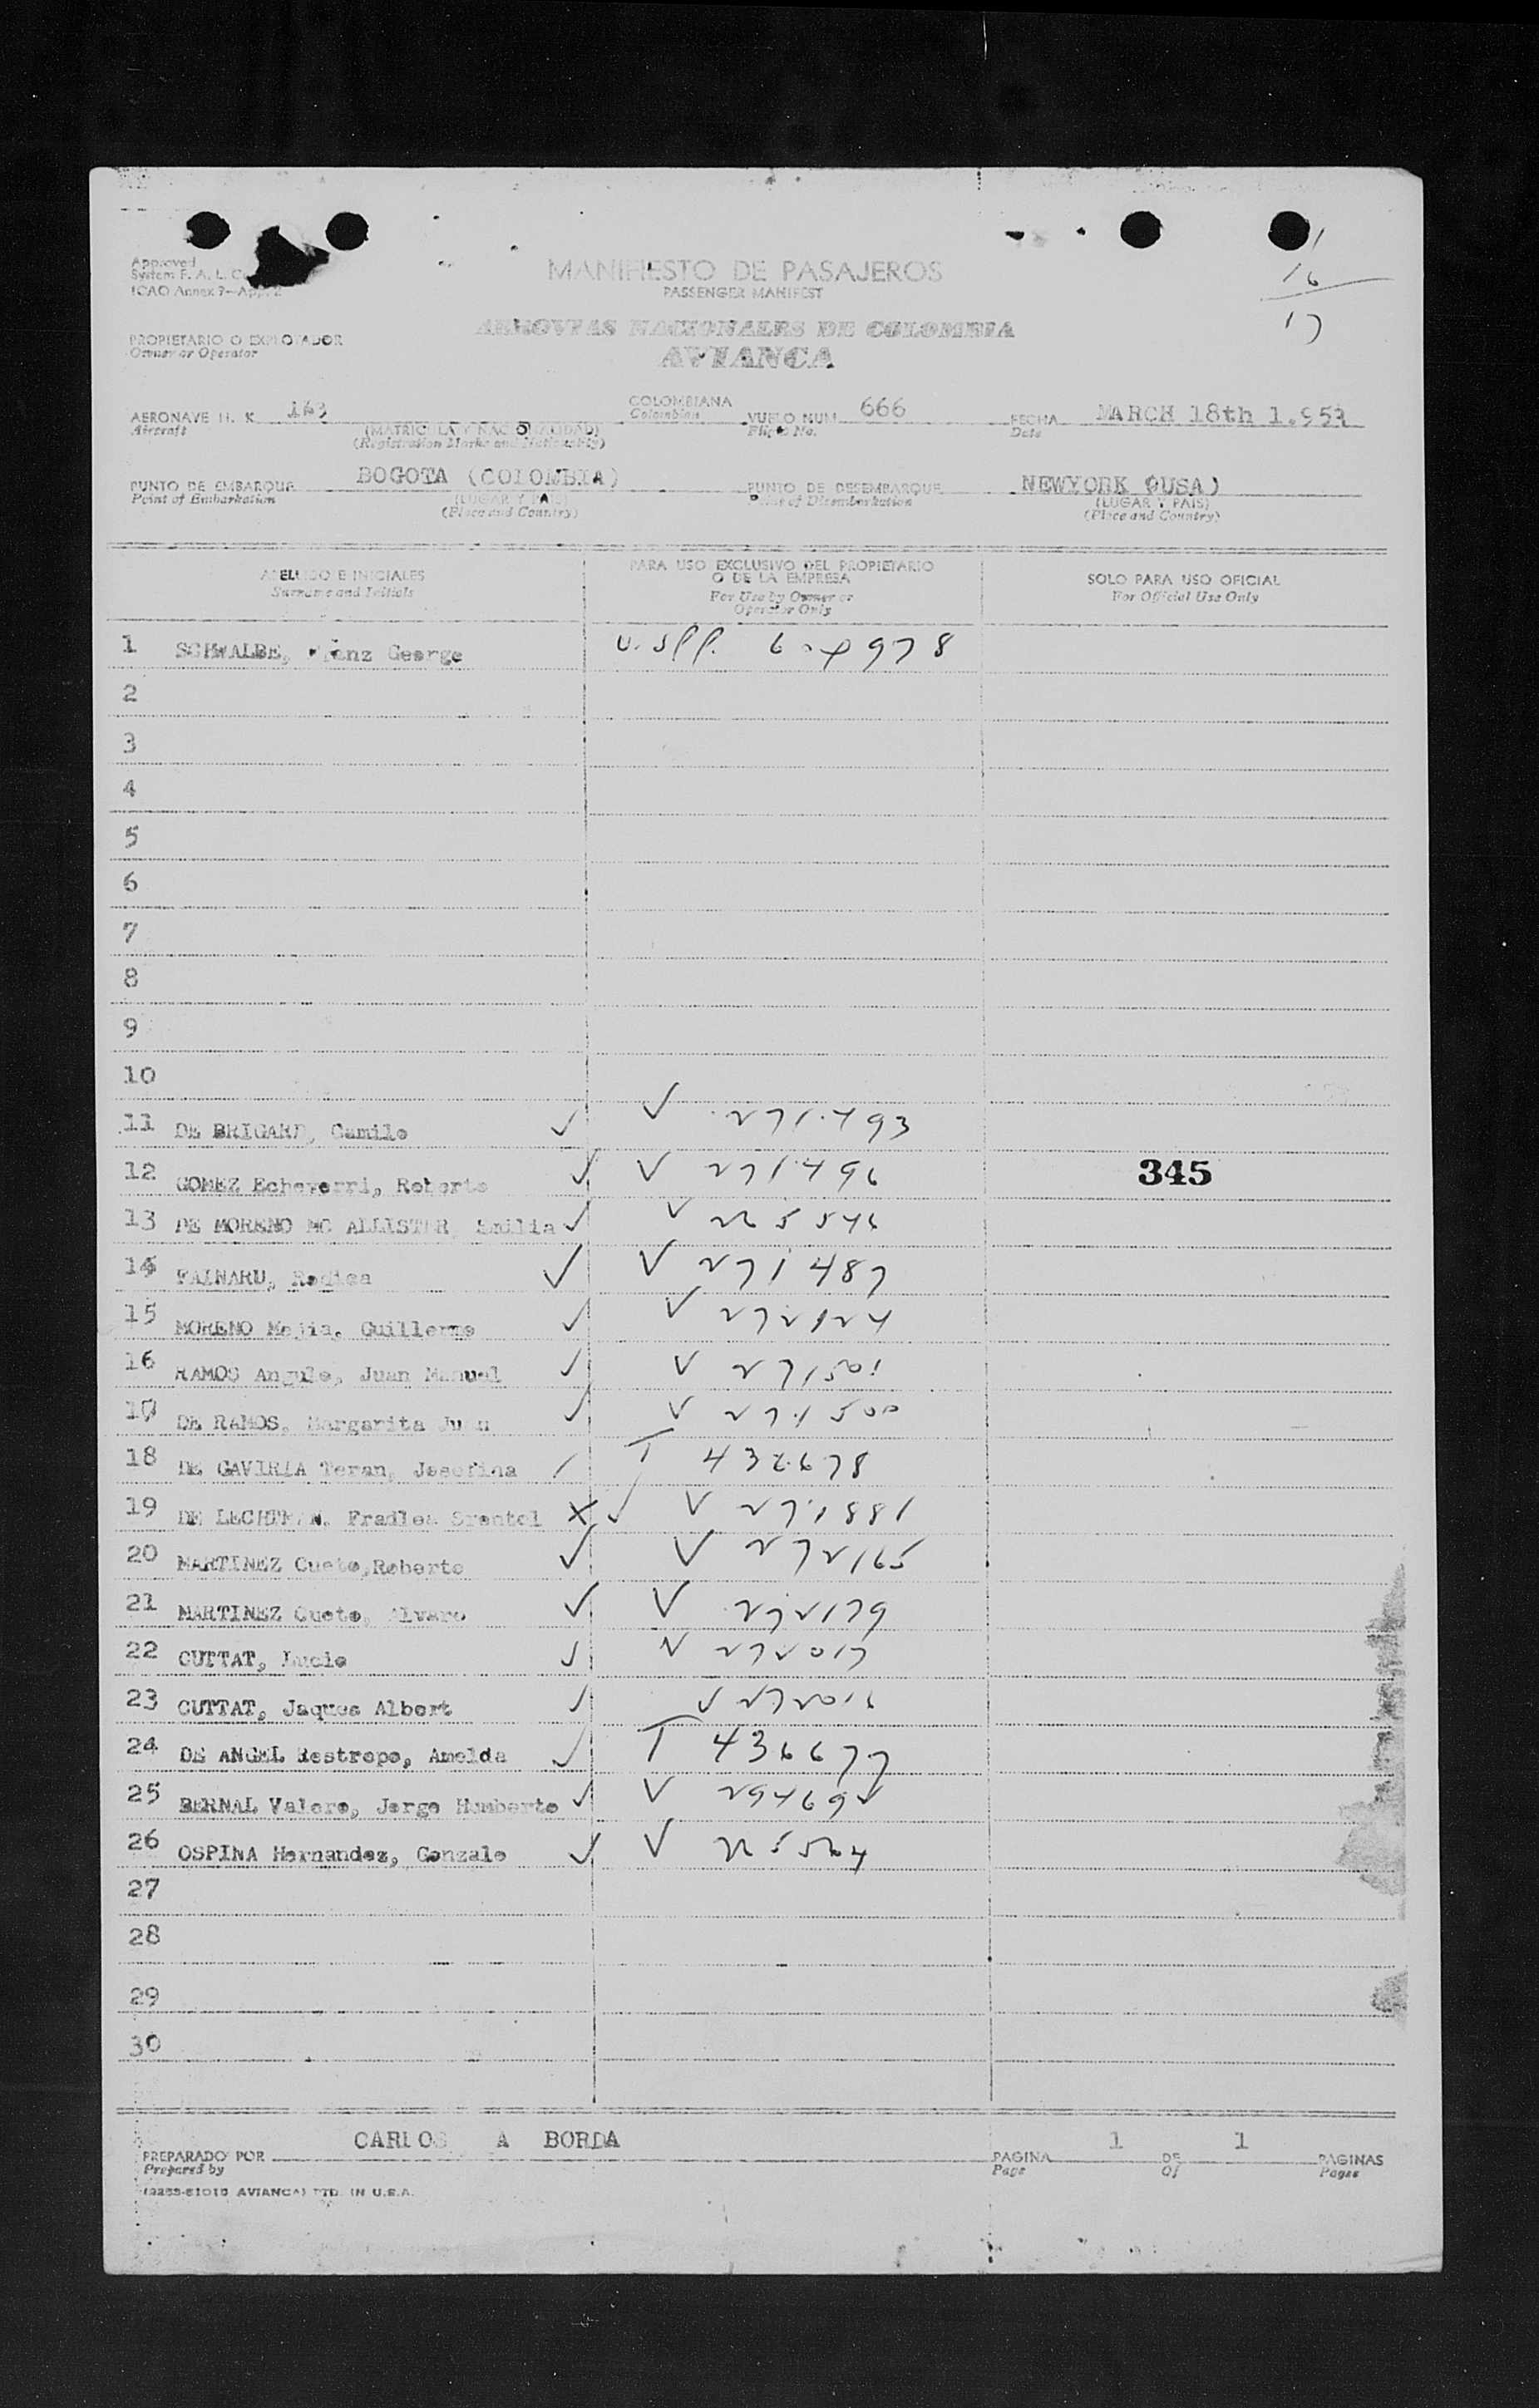 1
16
17
Approved
System F. A. L.
ICAO Annex 9-App. 2
MANIFIESTO DE PASAJEROS
PASSENGER MANIFEST
AEROVIAS NACIONALES DE COLOMBIA
AVIANCA
PROPIETARIO O EXPLOTADOR
Owner or Operator
AERONAVE H. K 163 COLOMBIANA VUELO NUM 666 FECHA MARCH 18th 1.953
Aircraft (MATRICULA Y NACIONALIDAD) Colombian Flight No. Date
(Registration Marks and Nationality)
PUNTO DE EMBARQUE BOGOTA (COLOMBIA) PUNTO DE DESEMBARQUE NEWYORK (USA)
Point of Embarkation (LUGAR Y PAIS) Point of Disembarkation (LUGAR Y PAIS)
(Place and Country) (Place and Country)
APELLIDO E INICIALES PARA USO EXCLUSIVO DEL PROPIETARIO SOLO PARA USO OFICIAL
Surname and Initials O DE LA EMPRESA For Official Use Only
For Use by Owner or
Operator Only
1 SCHWALBE, George 978
2
3
4
5
6
7
8
9
10
11 DE BRIGARD, Camilo ✓ V 271493
12 GOMEZ Echeverri, Roberto ✓ V 271496 345
13 DE MORENO MC ALLISTER, Emilia ✓ V
14 FAINARU, Rodica ✓ V 271487
15 MORENO Mejia, Guillermo ✓ V 272124
16 RAMOS Angulo, Juan Manuel ✓ V 271501
17 DE RAMOS, Margarita Juan ✓ V 271500
18 DE GAVIRIA Teran, Josefina / T 432678
19 DE LECHTMAN, X ✓ V 271881
20 MARTINEZ Cueto,Roberto ✓ V 272165
21 MARTINEZ Cueto, Alvaro ✓ V 272179
22 CUTTAT, Lucie ✓ V 272017
23 CUTTAT, Jaques Albert ✓ V 272016
24 DE ANGEL Restrepo, Amelda ✓ T 436677
25 BERNAL Valero, Jorge Humberto ✓ V 294692
26 OSPINA Hernandez, Gonzalo ✓ V
27
28
29
30
PREPARADO POR CARLOS A BORDA PAGINA 1 DE 1 PAGINAS
Prepared by Page Of Pages
AVIANCA) PTD. IN U.S.A.